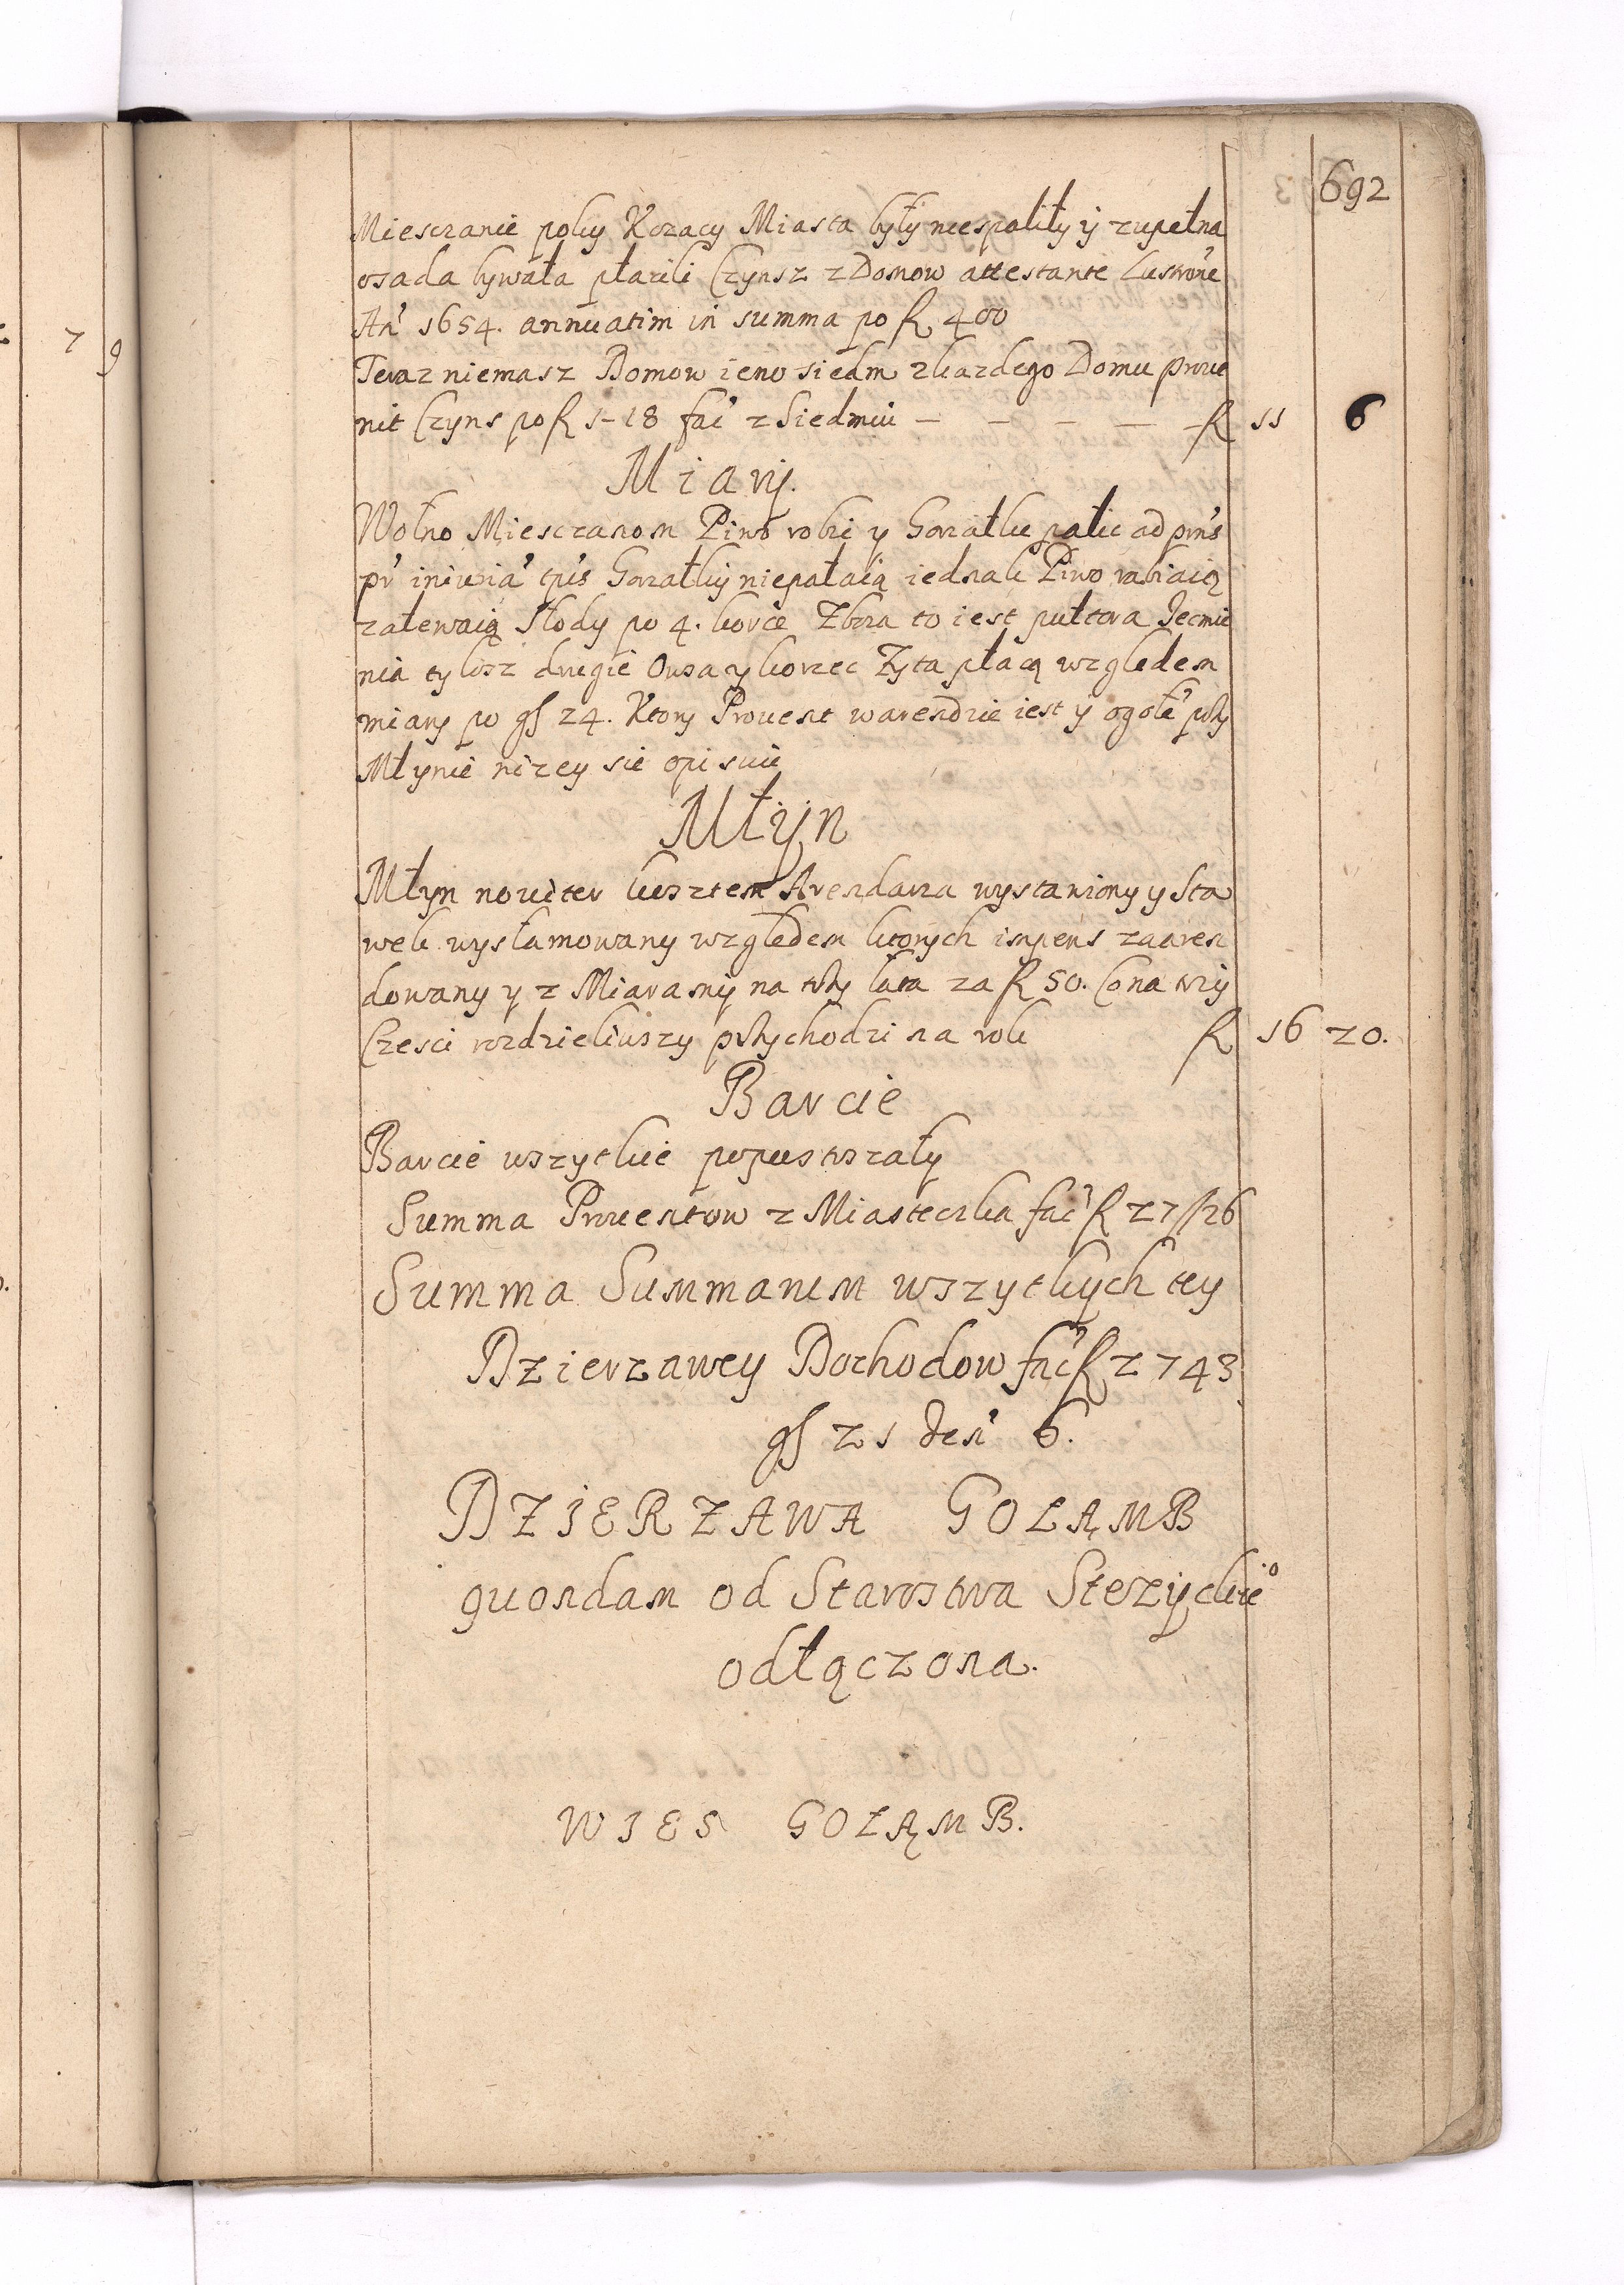 692
Miesczanie poky Kozacy Miasta były niespaliły y zupełna
osada bywała płacili Czynsz z Domow attestante Lustrõne
An' 1654. annuatim in summa po fl 400
Teraz niemasz Domow ieno siedm zkazdego Domu prove
nit Czyns po fl 1-18 fac' z Siedmiu — — — — — fl 11 6
Miary.
Wolno Miesczanom Piwo robic y Gorzałke palic ad pnr's
pr' iniuria' tpr's Gorzałky niepalaią iednak Piwo rabiaią
zalewaią Słody po 4. korce Zboza to iest pułtora Jecmie
nia tylosz drugie Owsa y korzec Zyta płacą względem
miary po gs 24. Ktory Provent warendzie iest y ogołe' przy
Młynie nizey sie opisuie
Młyn
Młyn noviter kosztem Arendarza wystawiony y Sta
wek wysłamowany względem ktorych inpens zaaren
dowany y z Miaramy na trzy lata za fl 50. Co na trzy
Czesci rozdzieliwszy przychodzi na rok fl 16 20.
Barcie
Barcie wszytkie popustoszały
Summa Proventow z Miasteczka fac' fl 27/26
Summa Summarum wszytkych tey
Dzierzawey Dochodow fac' fl 2743
gs 21 den' 6.
DZIERZAWA GOLĄMB
quondam od Starostwa Stezyckie⁰
odłączona.
WIES GOLĄMB.
7 9